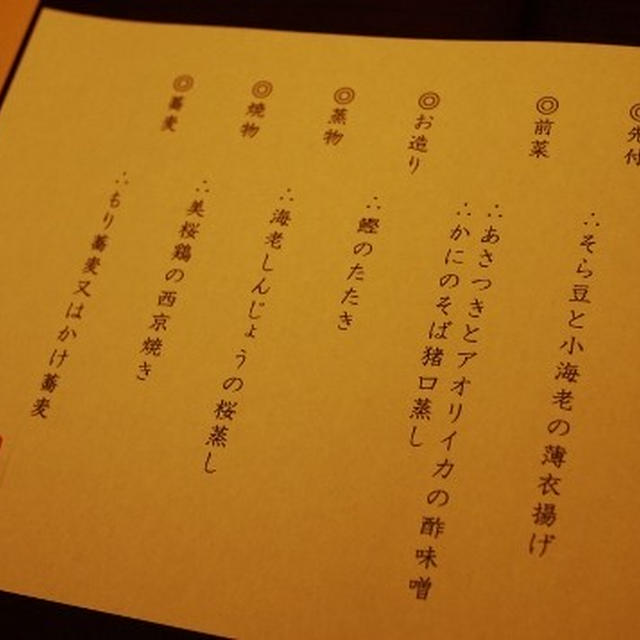 ◎先付
∴そら豆と小海老の薄衣揚げ
◎前菜
∴あさつきとアオリイカの酢味噌
∴かにのそば猪口蒸し
◎お造り
∴鰹のたたき
◎蒸物
∴海老しんじょうの桜蒸し
◎焼物
∴美桜鶏の西京焼き
◎蕎麦
∴もり蕎麦又はかけ蕎麦